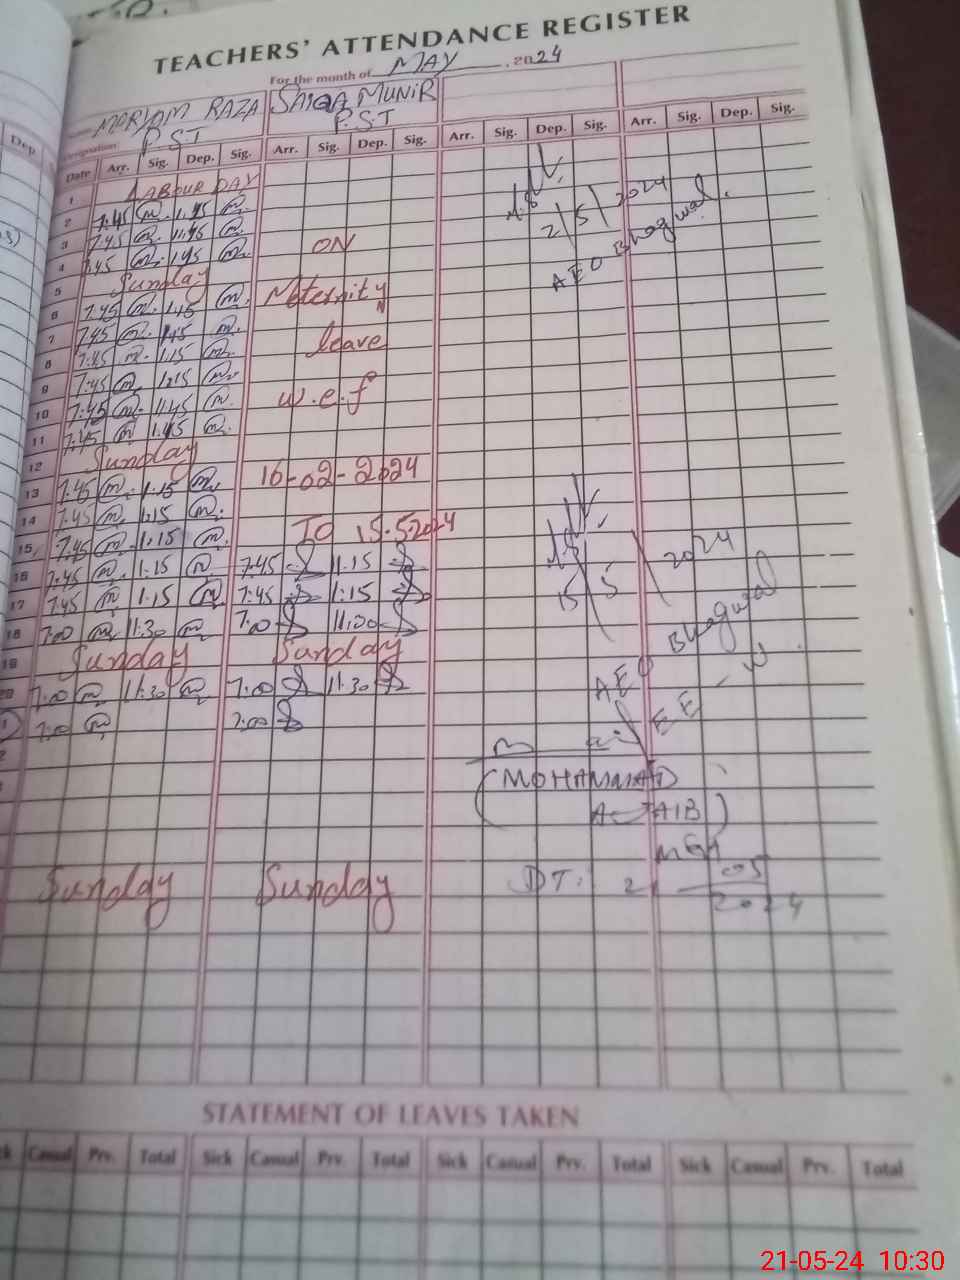 TEACHERS' ATTENDANCE REGISTER
For the month of MAY 2024
MARYAM RAZA SAIQA MUNIR
P.S.T P.S.T
Designation
Date Arr. Sig. Dep. Sig. Arr. Sig. Dep. Sig. Arr. Sig. Dep. Sig. Arr. Sig. Dep. Sig.
1 LABOUR DAY
2 7:45 1:45
3 7:45 1:45 ON
4 7:45 1:45
5 Sunday
6 7:45 1:15 Maternity
7 7:45 1:15
8 7:45 1:15 leave
9 7:45 1:15
10 7:45 11:45 w.e.f
11 7:45 1:45
12 Sunday
13 7:45 1:15 16-02-2024
14 7:45 1:15
15 7:45 1:15 TO 15.5.2024
16 7:45 1:15 7:45 11:15
17 7:45 1:15 7:45 1:15
18 7:00 11:30 7:00 11:30
19 Sunday Sunday
20 7:00 11:30 7:00 11:30
7:00 7:00
Sunday Sunday
2/5/2024
AEO Bhagwal
15/5/2024
AEO Bhagwal
(MOHAMMAD
MEA
DT: 21 05
2024
STATEMENT OF LEAVES TAKEN
Casual Prv. Total Sick Casual Prv. Total Sick Casual Prv. Total Sick Casual Prv. Total
21-05-24 10:30